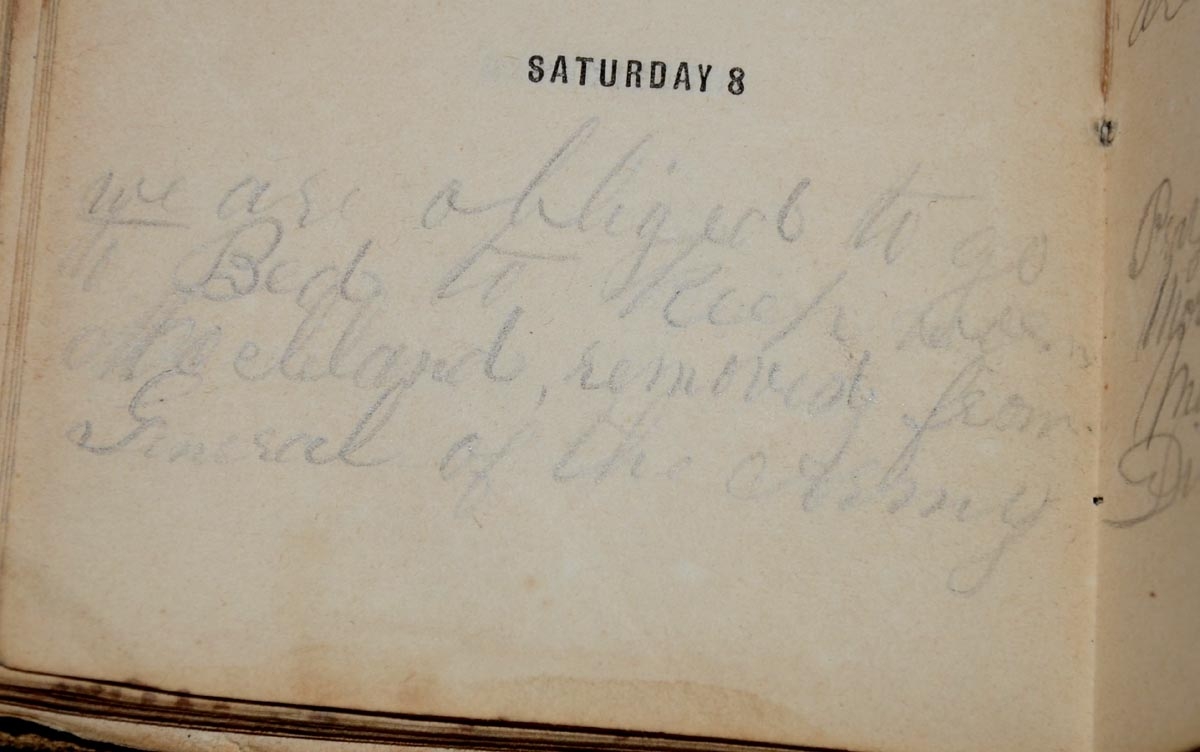 SATURDAY 8
we are obliged to go
to Bed to Keep warm
McClelland, removed from
General of the Army